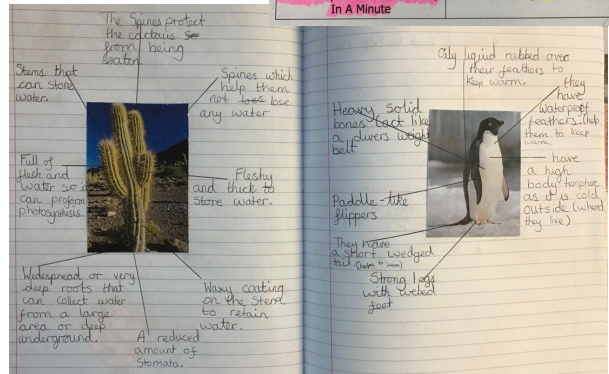 In A Minute
The Spines protect
the cactais
from being
eaten.
Stems that
can store
water.
Spines which
help them
not loos lose
any water
Full of
flesh and
water so it
can proform
photosynthesis.
Fleshy
and thick to
store water.
Widespread or very
deep roots that
can collect water
from a large
area or deep
underground.
A reduced
amount of
Stomata.
Waxy coating
on the Stend
to retain
water.
Oily liquid rubbed over
their feathers to
keep warm.
they
have
waterproof
feathers. (help
them to keep
warm.
Heavy solid
bones -act like
a divers weight
belt
have
a high
body tempture
as it is cold
outside (where
they live)
Paddle-like
flippers
They have
a short wedged
tail. (helps to swim)
Strong legs
with webed
feet